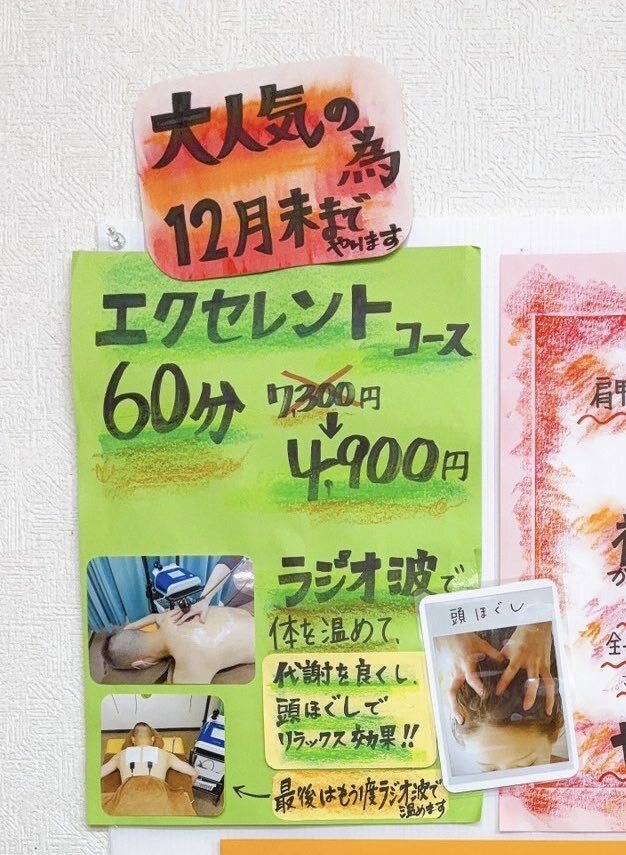 大人気の為
12月末まで
やります
エクセレントコース
60分
7,300円
↓
4,900円
ラジオ波で
体を温めて、
代謝を良くし、
頭ほぐしで
リラックス効果!!
←最後はもう1度ラジオ波で
温めます
頭ほぐし
肩甲